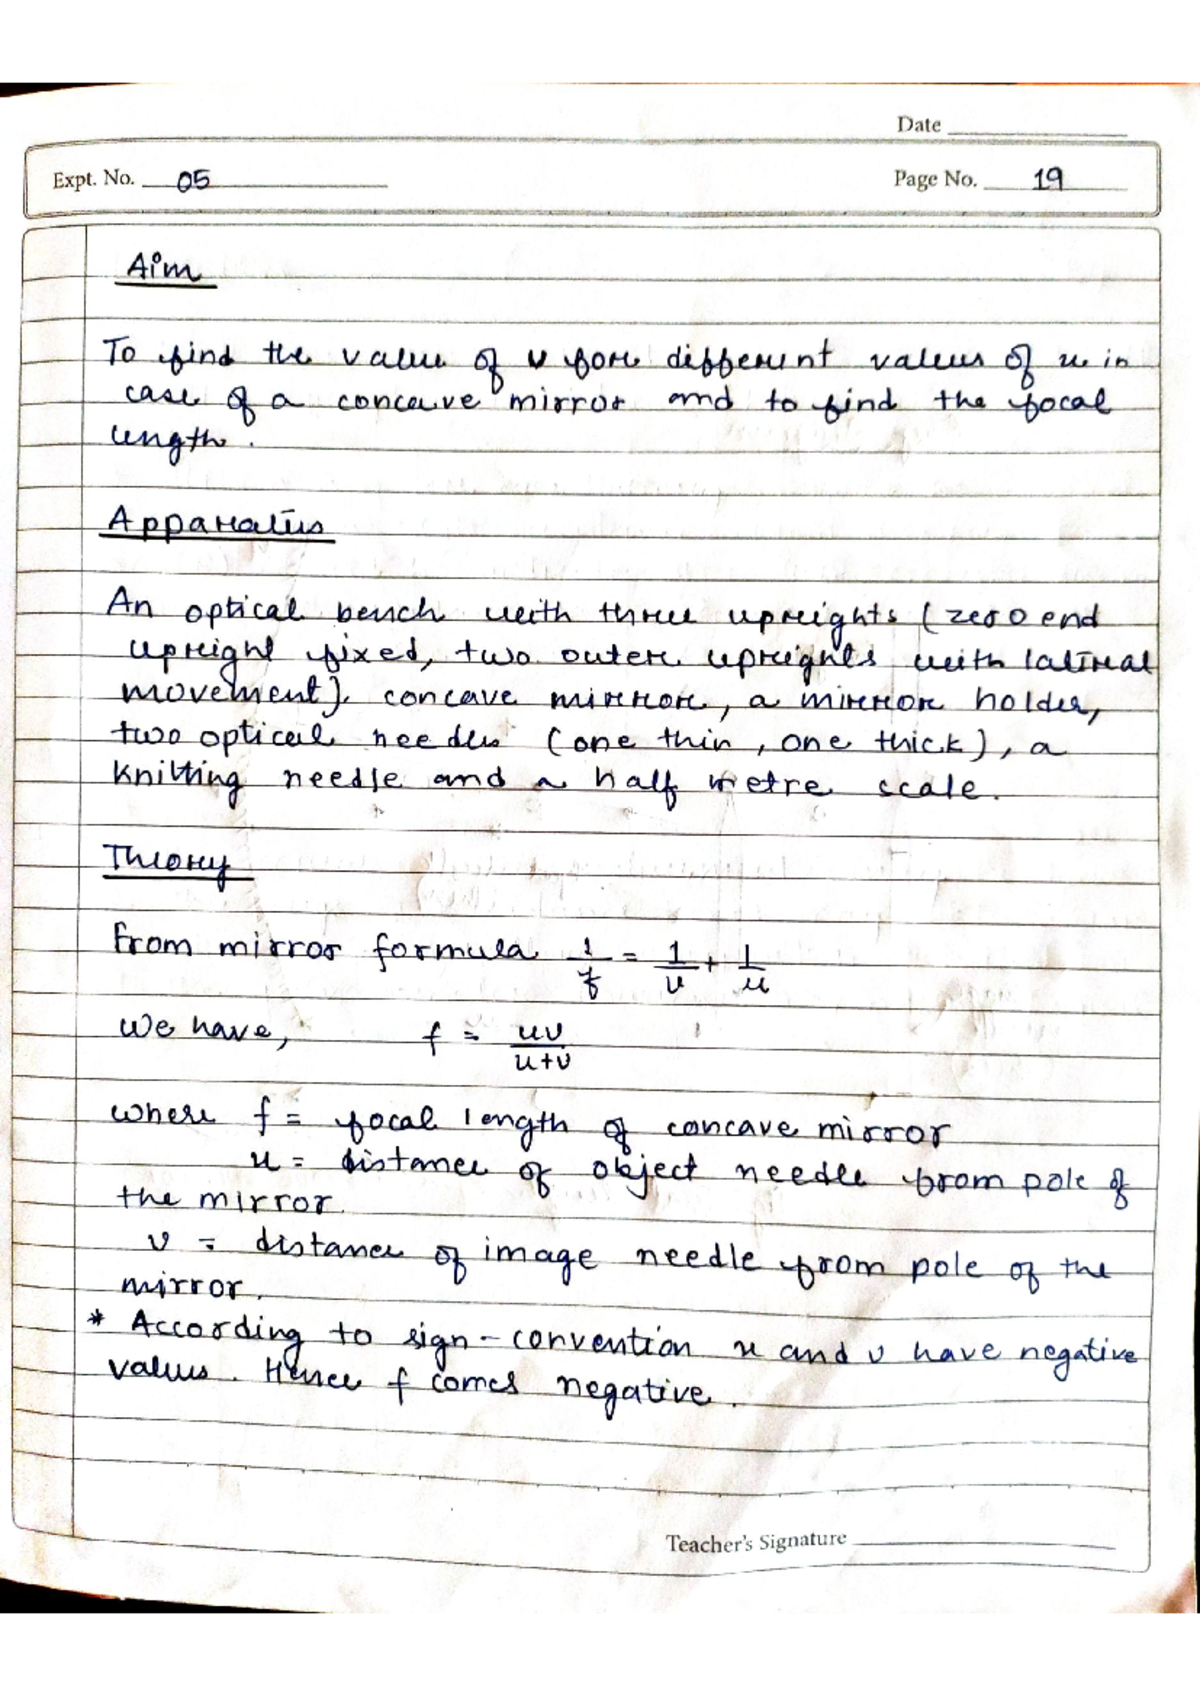 Date
Expt. No. 05
Page No. 19
Aim
To find the value of v for different values of u in
case of a concave mirror and to find the focal
length.
Apparatus
An optical bench with three uprights (zero end
upright fixed, two outer uprights with lateral
movement), concave mirror, a mirror holder,
two optical needles (one thin, one thick), a
knitting needle and a half metre scale.
Theory
From mirror formula 1/f = 1/v + 1/u
We have, f = uv/u+v
where f = focal length of concave mirror
u = distance of object needle from pole of
the mirror.
v = distance of image needle from pole of the
mirror.
* According to sign-convention u and v have negative
values. Hence f comes negative.
Teacher's Signature